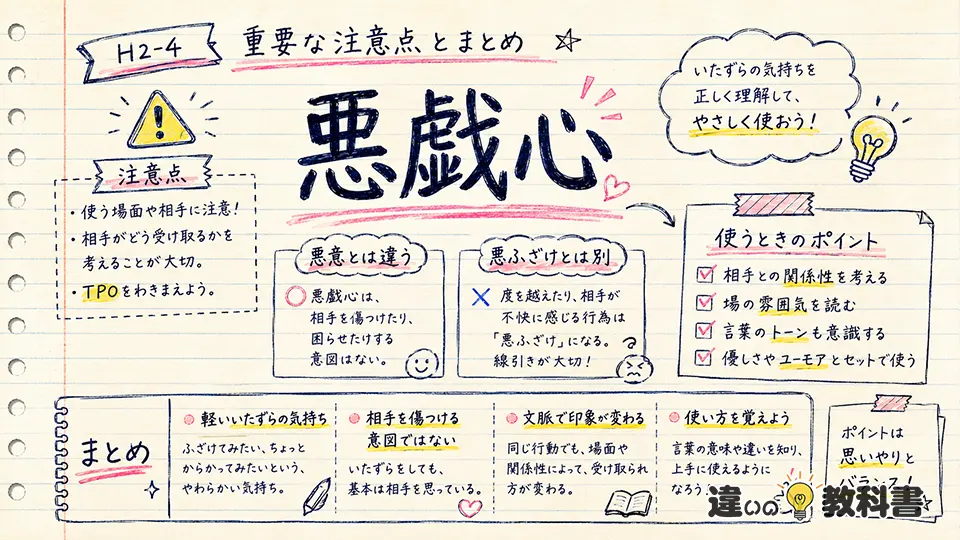 H2-4
重要な注意点とまとめ
いたずらの気持ちを
正しく理解して、
やさしく使おう!
悪戯心
注意点
・使う場面や相手に注意!
・相手がどう受け取るかを
考えることが大切。
・TPOをわきまえよう。
悪意とは違う
悪戯心は、
相手を傷つけたり、
困らせたりする
意図はない。
悪ふざけとは別
度を越えたり、相手が
不快に感じる行為は
「悪ふざけ」になる。
線引きが大切!
使うときのポイント
相手との関係性を考える
場の雰囲気を読む
言葉のトーンも意識する
優しさやユーモアとセットで使う
まとめ
軽いいたずらの気持ち
ふざけてみたい、ちょっと
からかってみたいという、
やわらかい気持ち。
相手を傷つける
意図ではない
いたずらをしても、
基本は相手を思っている。
文脈で印象が変わる
同じ行動でも、場面や
関係性によって、受け取られ
方が変わる。
使い方を覚えよう
言葉の意味や違いを知り、
上手に使えるように
なろう
ポイントは
思いやりと
バランス!
違いの教科書